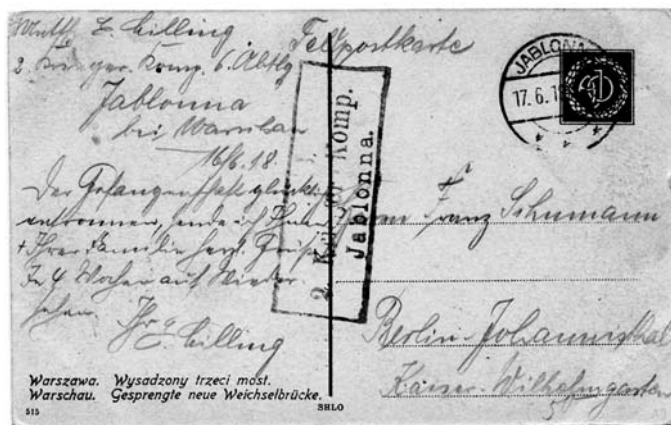 Z. Cilling
Feldpostkarte
2. Komp. 6. Abtlg
Jablonna
bei Warschau
16/6.18.
Der Gefangenschaft glücklich
entronnen, sende ich Ihnen
+ Ihrer Familie herzl. Grüße
In 4 Wochen auf Wieder-
sehen. Ihr
Cilling
2. Komp.
Jablonna.
JABLONNA
17.6.1
Franz Schumann
Berlin-Johannisthal
Kaiser-Wilhelmgarten
Warszawa. Wysadzony trzeci most.
Warschau. Gesprengte neue Weichselbrücke.
515
SHLO